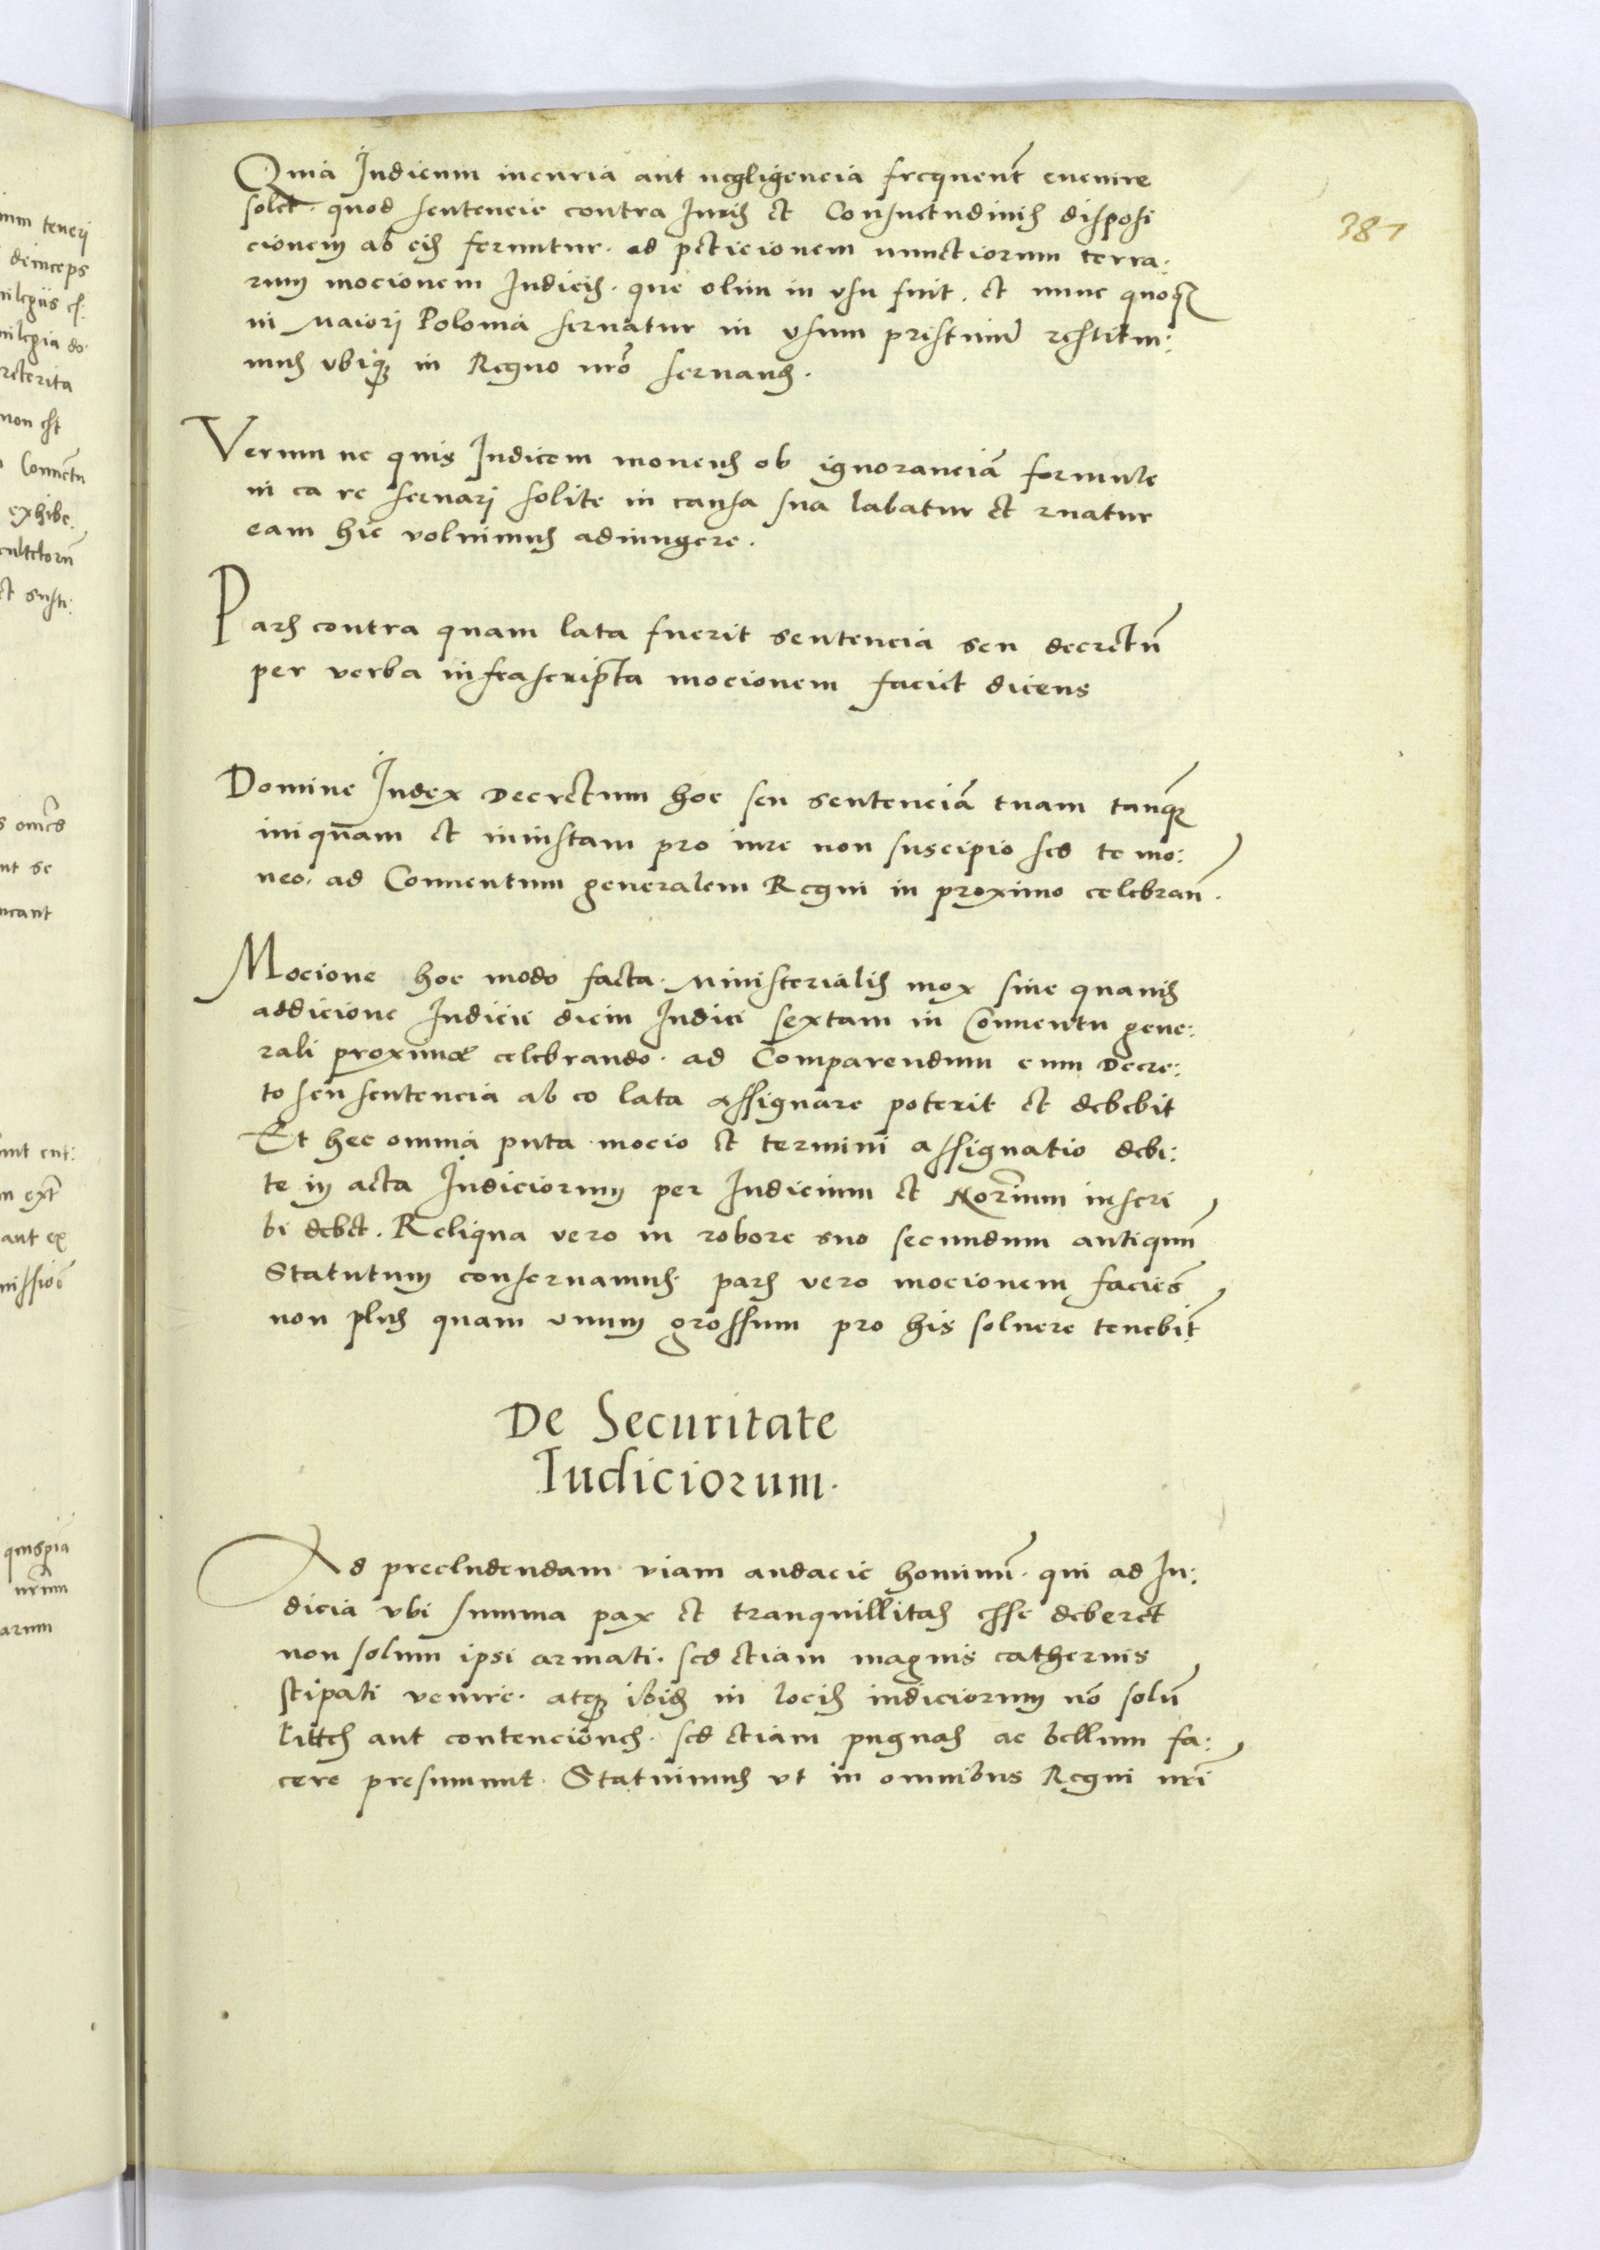 381
Quia Judicum incuria aut negligencia frequent̃ euenire
solet · quod sentencie contra Juris et Consuetudinis disposi
cionem ab eis feruntur · ad peticionem nunctiorum terra:
rum mocionem Judicis · que olim in vsu fuit · et nunc quoq̃
in Maiori Polonia seruatur in vsum pristinũ restitui:
mus vbiq̃ in Regno nr̃o seruand.
Verum ne quis Judicem monens ob ignoranciã formule
in ea re seruari solite in causa sua labatur et ruatur
eam hic voluimus adiungere.
Pars contra quam lata fuerit sentencia seu decretũ
per verba infrascripta mocionem faciet dicens
Domine Judex Decretum hoc seu sentenciã tuam tanq̃
iniquam et iniustam pro iure non suscipio sed te mo:
neo · ad Conuentum generalem Regni in proximo celebran̄.
Mocione hoc modo facta · Ministerialis mox sine quauis
addicione Judicii diem Judici sextam in Conuentu gene:
rali proxime celebrando · ad Comparendum cum Decre:
to seu sentencia ab eo lata assignare poterit et debebit
Et hec omnia puta mocio et termini assignatio debi:
te in acta Judiciorum per Judicium et Nor̃ium inscri
bi debet. Reliqua vero in robore suo secundum antiquũ
Statutum conseruamus · pars vero mocionem faciẽs
non plus quam vnum grossum pro his soluere tenebit̃
De Securitate
Iudiciorum.
Ad precludendam viam audacie hominũ · qui ad Ju:
dicia vbi summa pax et tranquillitas esse deberet
non solum ipsi armati · sed etiam magnis catheruis
stipati venire · atq̃ ibid in locis iudiciorum nõ solũ
lites aut contenciones · sed etiam pugnas ac bellum fa:
cere presumunt · Statuimus vt in omnibus Regni nr̃i